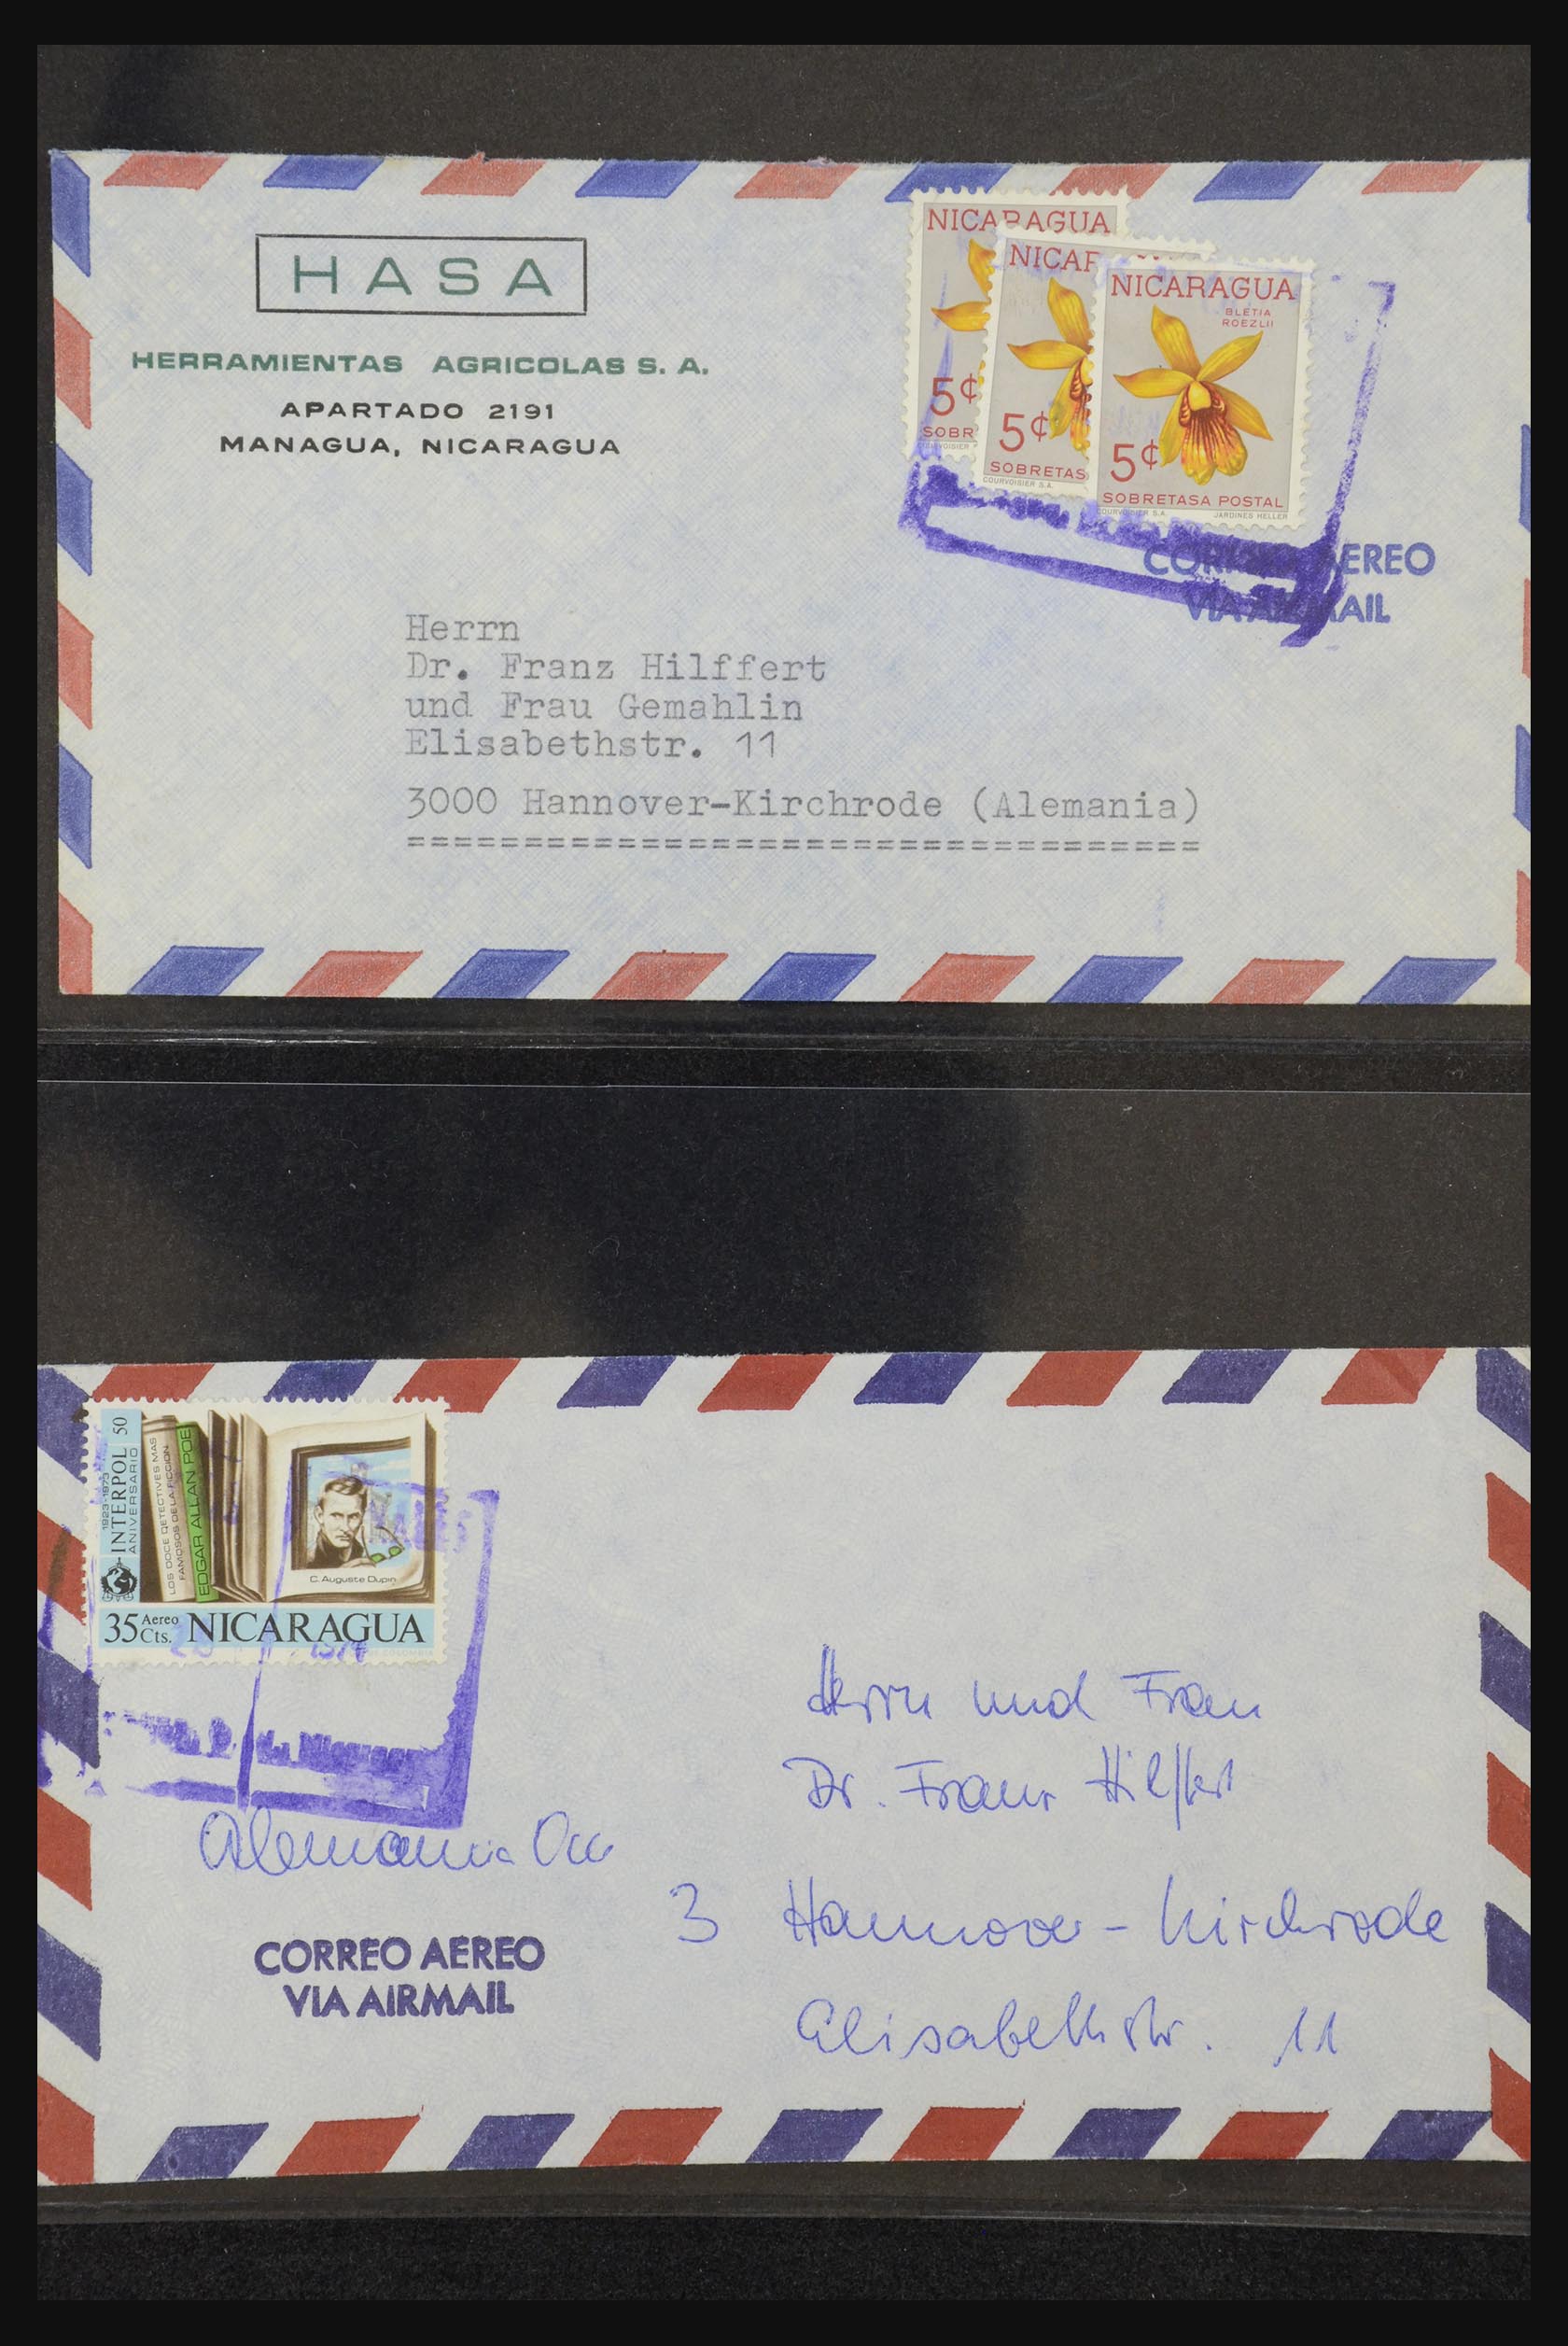 HASA
HERRAMIENTAS AGRICOLAS S. A.
APARTADO 2191
MANAGUA, NICARAGUA
NICARAGUA
5¢
SOBR
NICAR
5¢
SOBRETAS
COURVOISIER S.A.
NICARAGUA
BLETIA
ROEZLII
5¢
SOBRETASA POSTAL
COURVOISIER S.A. JARDINES HELLER
CORREO AEREO
VIA AIRMAIL
Herrn
Dr. Franz Hilffert
und Frau Gemahlin
Elisabethstr. 11
3000 Hannover-Kirchrode (Alemania)
===================================
1923-1973
INTERPOL 50
ANIVERSARIO
LOS DOCE DETECTIVES MAS
FAMOSOS DE LA FICCION
EDGAR ALLAN POE
C. Auguste Dupin
35 Aereo Cts. NICARAGUA
Alemania Occ
CORREO AEREO
VIA AIRMAIL
Herrn und Frau
Dr. Franz Hilffert
3 Hannover - Kirchrode
Elisabethstr. 11